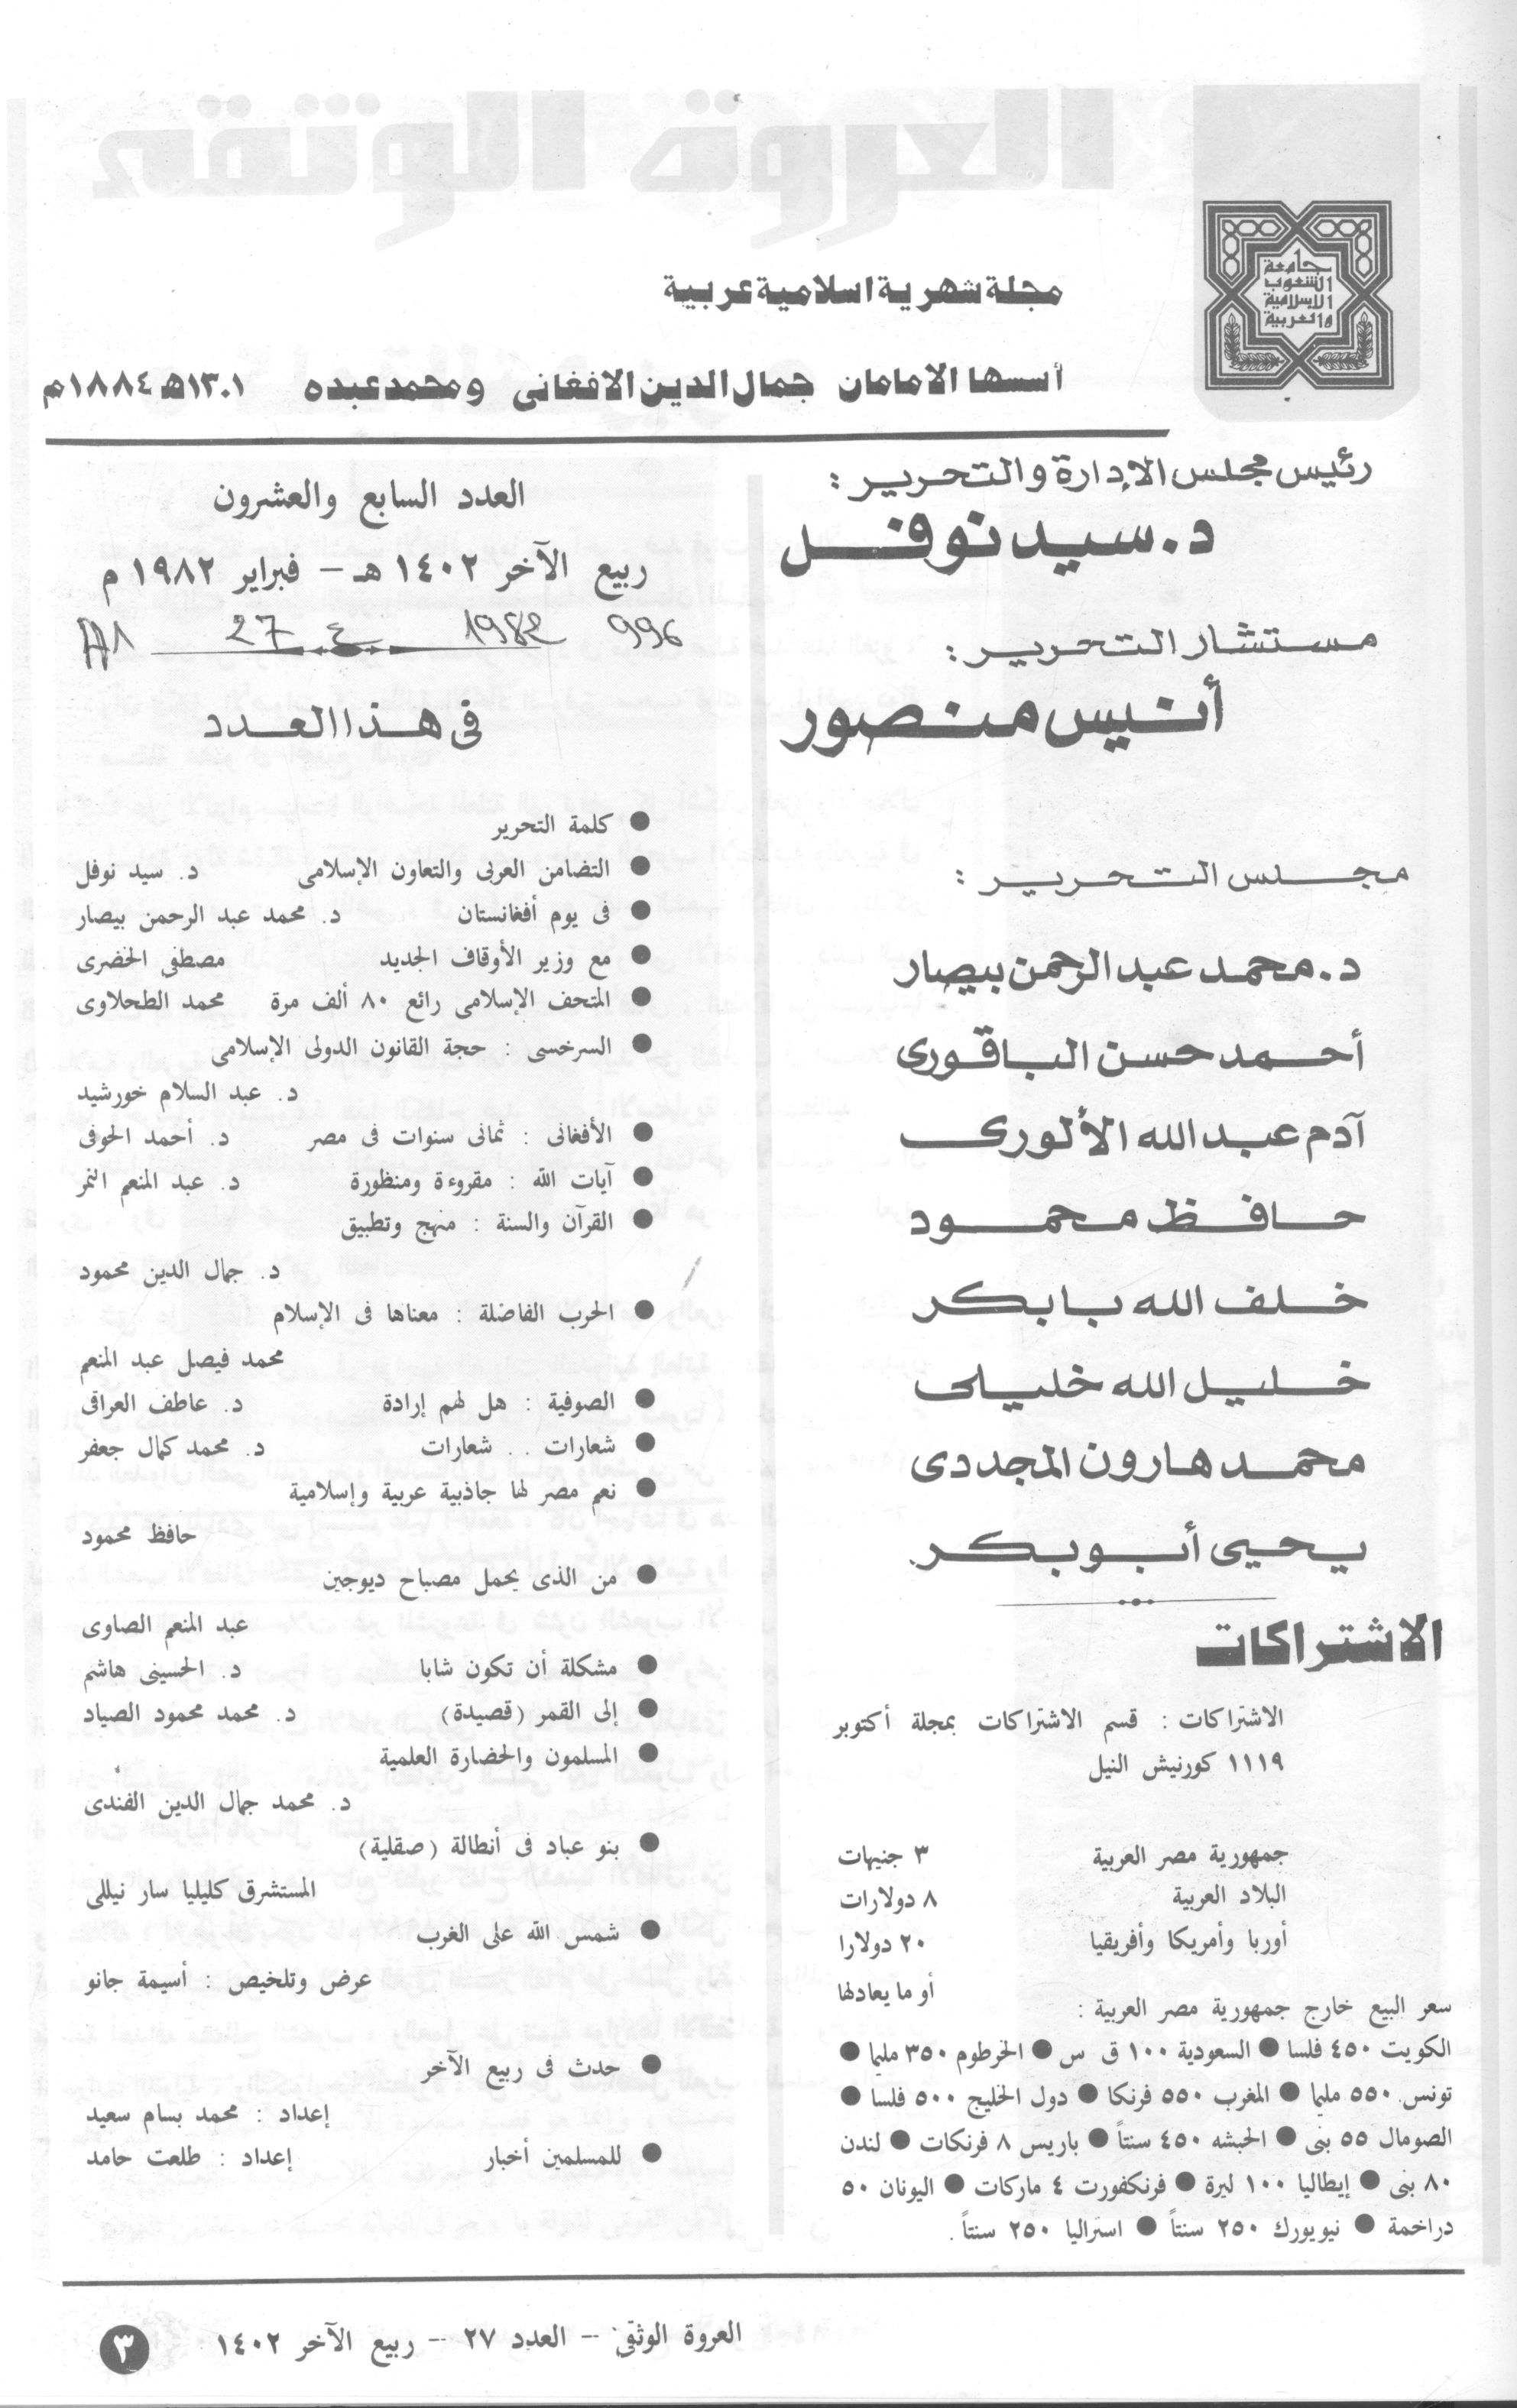 العروة الوثقى
جامعة
الشعوب
الإسلامية
والعربية
مجلة شهرية اسلامية عربية
أسسها الامامان جمال الدين الافغانى ومحمد عبده ١٣٠١هـ ١٨٨٤م
رئيس مجلس الإدارة والتحرير :
د. سيد نوفل
مستشار التحرير :
أنيس منصور
مجلس التحرير :
د. محمد عبد الرحمن بيصار
أحمد حسن الباقورى
آدم عبد الله الألورى
حافظ محمود
خلف الله بابكر
خليل الله خليلى
محمد هارون المجددى
يحيى أبو بكر
الاشتراكات
الاشتراكات : قسم الاشتراكات بمجلة أكتوبر
١١١٩ كورنيش النيل
جمهورية مصر العربية ٣ جنيهات
البلاد العربية ٨ دولارات
أوربا وأمريكا وأفريقيا ٢٠ دولارا
أو ما يعادلها
سعر البيع خارج جمهورية مصر العربية :
الكويت ٤٥٠ فلسا ● السعودية ١٠٠ ق س ● الخرطوم ٣٥٠ مليما ●
تونس ٥٥٠ مليما ● المغرب ٥٥٠ فرنكا ● دول الخليج ٥٠٠ فلسا ●
الصومال ٥٥ بنى ● الحبشه ٤٥٠ سنتاً ● باريس ٨ فرنكات ● لندن
٨٠ بنى ● إيطاليا ١٠٠ ليرة ● فرنكفورت ٤ ماركات ● اليونان ٥٠
دراخمة ● نيويورك ٢٥٠ سنتاً ● استراليا ٢٥٠ سنتاً .
العدد السابع والعشرون
ربيع الآخر ١٤٠٢ هـ – فبراير ١٩٨٢ م
27 ع 1982 996
فى هذا العدد
● كلمة التحرير
● التضامن العربى والتعاون الإسلامى د. سيد نوفل
● فى يوم أفغانستان د. محمد عبد الرحمن بيصار
● مع وزير الأوقاف الجديد مصطفى الخضرى
● المتحف الإسلامى رائع ٨٠ ألف مرة محمد الطحلاوى
● السرخسى : حجة القانون الدولى الإسلامى
د. عبد السلام خورشيد
● الأفغانى : ثمانى سنوات فى مصر د. أحمد الحوفى
● آيات الله : مقروءة ومنظورة د. عبد المنعم النمر
● القرآن والسنة : منهج وتطبيق
د. جمال الدين محمود
● الحرب الفاضلة : معناها فى الإسلام
محمد فيصل عبد المنعم
● الصوفية : هل لهم إرادة د. عاطف العراقى
● شعارات . . شعارات د. محمد كمال جعفر
● نعم مصر لها جاذبية عربية وإسلامية
حافظ محمود
● من الذى يحمل مصباح ديوجين
عبد المنعم الصاوى
● مشكلة أن تكون شابا د. الحسينى هاشم
● إلى القمر (قصيدة) د. محمد محمود الصياد
● المسلمون والحضارة العلمية
د. محمد جمال الدين الفندى
● بنو عباد فى أنطالة (صقلية)
المستشرق كليليا سار نيللى
● شمس الله على الغرب
عرض وتلخيص : أسيمة جانو
● حدث فى ربيع الآخر
إعداد : محمد بسام سعيد
● للمسلمين أخبار إعداد : طلعت حامد
العروة الوثقى – العدد ٢٧ – ربيع الآخر ١٤٠٢
٣